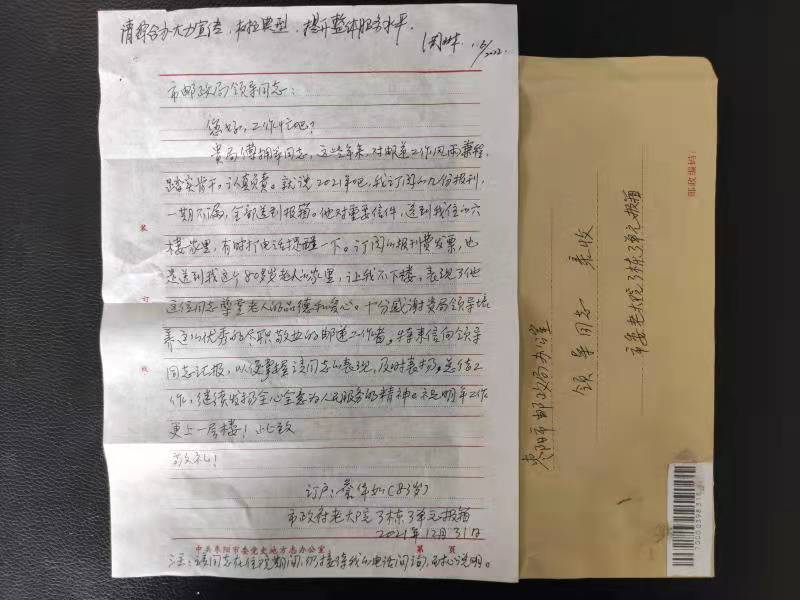 请综合办大力宣传，树立典型，提升整体服务水平。
市邮政局领导同志：
您好，工作忙吧？
贵局傅拥军同志，这些年来，对邮递工作风雨兼程，
踏实肯干，认真负责。就说2021年吧，我订阅的九份报刊，
一期不漏，全部送到报箱。他对重要信件，送到我住的六
楼家里，有时打电话提醒一下。订阅的报刊费发票，也
是送到我这个80多岁老人的家里，让我不下楼，表现了他
这位同志孝重老人的品德和爱心。十分感谢贵局领导培
养这么优秀的尽职敬业的邮递工作者。特来信向领导
同志汇报，以便掌握该同志的表现，及时表扬。总结工
作，继续发扬全心全意为人民服务的精神。祝明年工作
更上一层楼！此致
敬礼！
订户：(83岁)
市政府老大院3栋3单元报箱
2021年12月31日
中共枣阳市委党史地方志办公室 第 页
注：该同志在住院期间，仍接待我的电话问询，耐心说明。
装
订
线
邮政编码：
枣阳市邮政局办公室
领导同志 亲收
市委老大院3栋3单元报箱